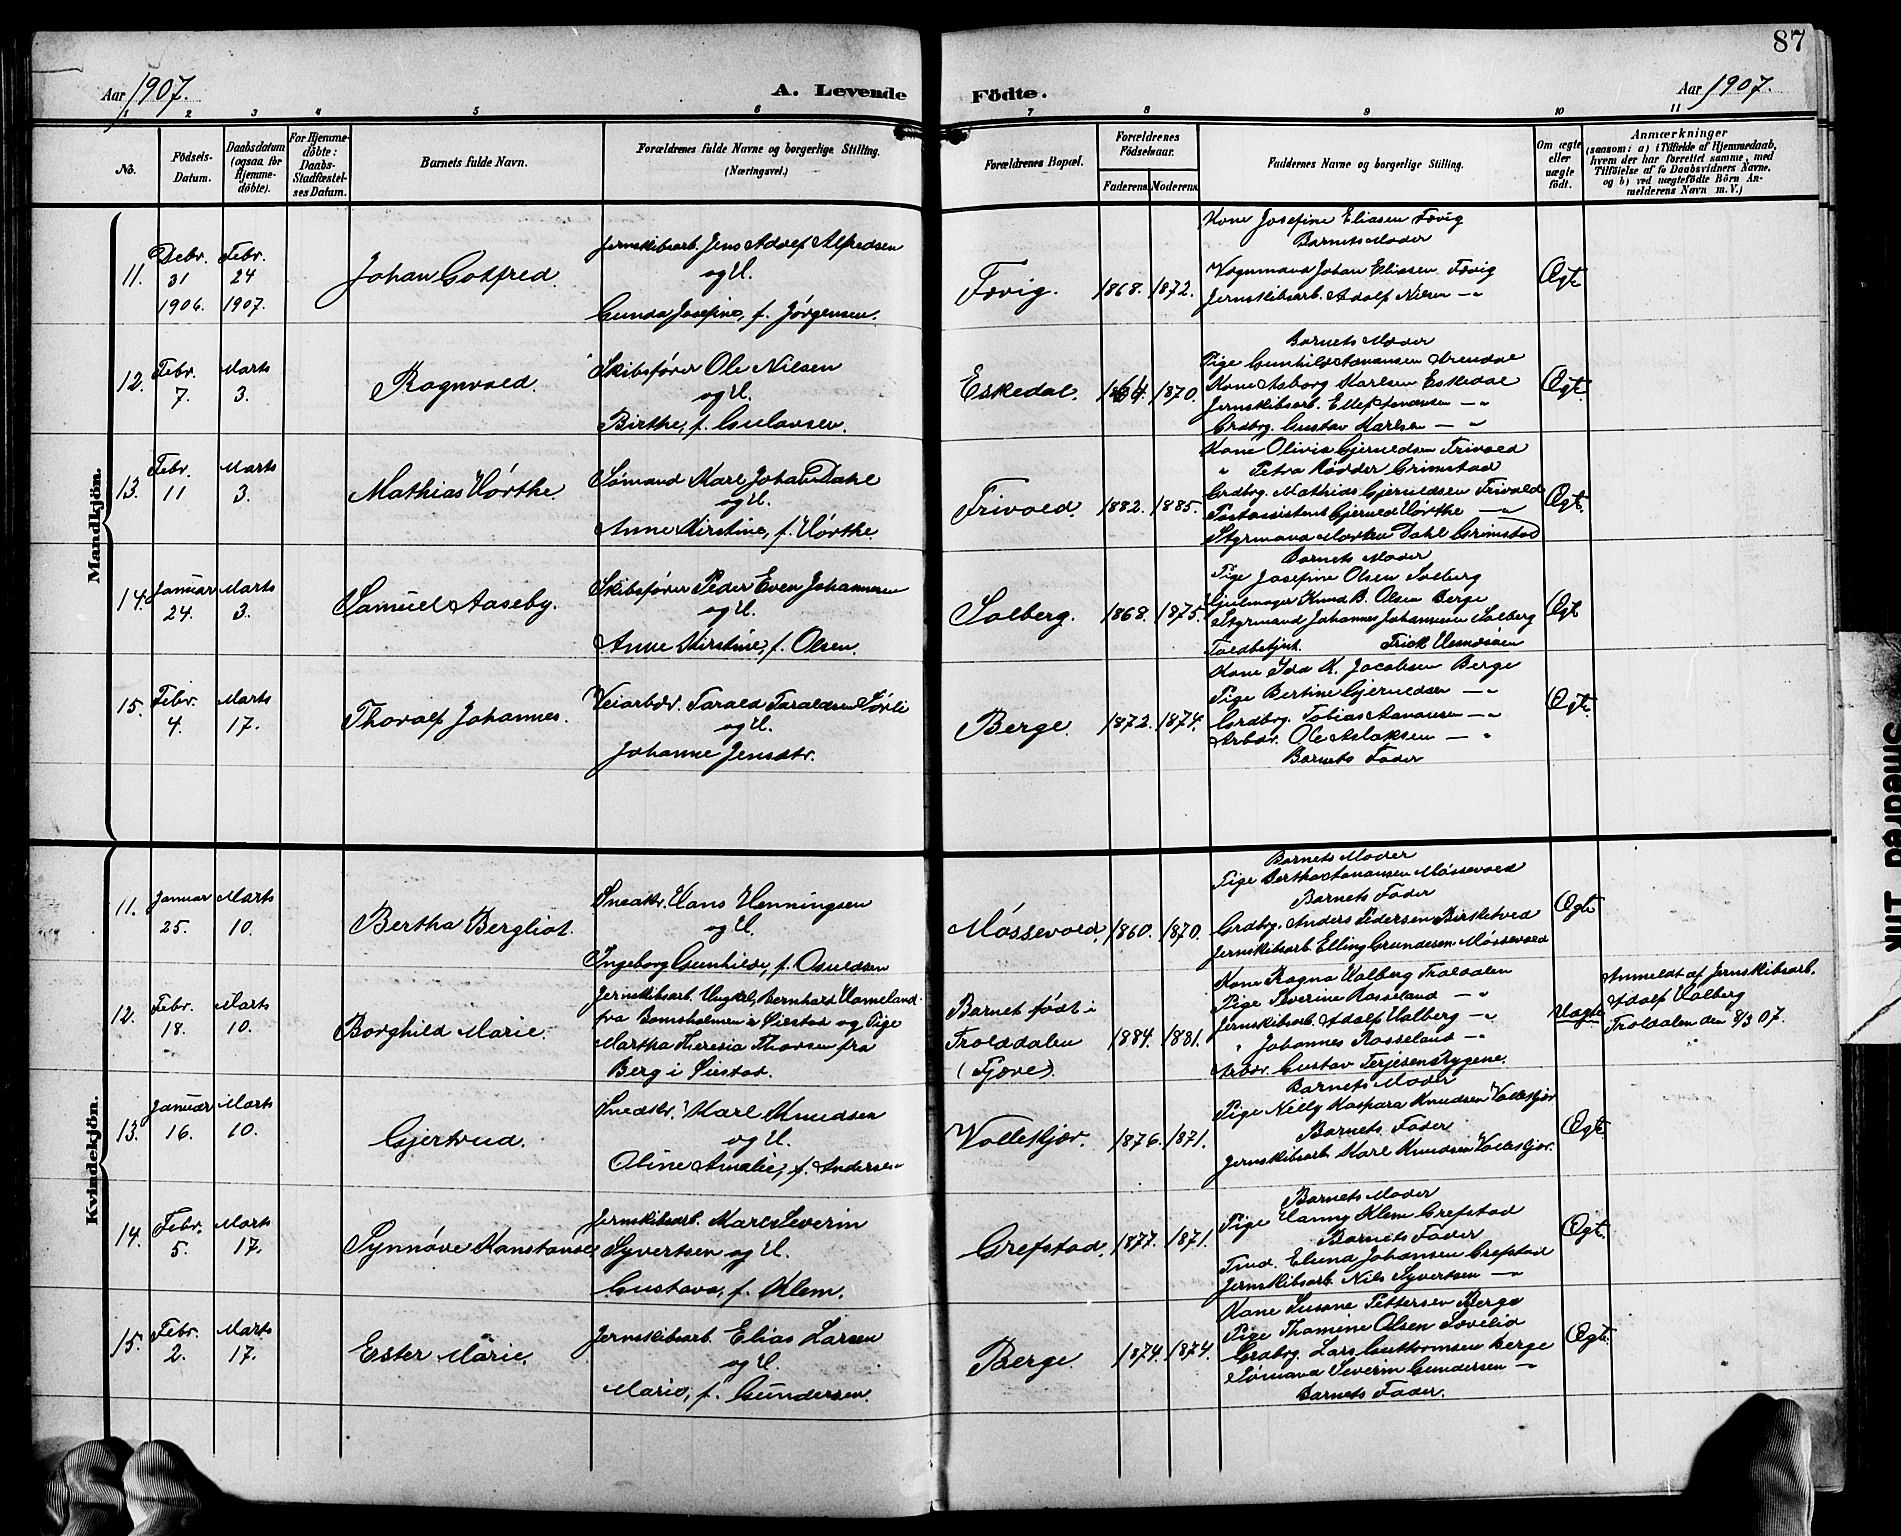 87
Aar 1907.
A. Levende Födte.
Aar 1907.
1 2 3 4 5 6 7 8 9 10 11
No.
Födsels-Datum.
Daabsdatum (ogsaa for Hjemme-döbte).
For Hjemme-döbte: Daabs-Stadfæstel-ses Datum.
Barnets fulde Navn.
Forældrenes fulde Navne og borgerlige Stilling.
(Næringsvei.)
Forældrenes Bopæl.
Forældrenes Födselsaar.
Faderens. Moderens.
Faddernes Navne og borgerlige Stilling.
Om ægte eller uægte födt.
Anmærkninger
(saasom: a) i Tilfælde af Hjemmedaab,
hvem der har forrettet samme, med
Tilföielse af to Daabsvidners Navne,
og b) ved uægtefödte Börn An-
melderens Navn m. V.)
Mandkjön.
11.
Debr. 31 1906.
Febr. 24 1907.
Johan Gotfred.
Jernskibsarb. Jens Adolf Alfredsen
og H.
Gunda Josefine, f. Jørgensen.
Fævig.
1868. 1872.
Kone Josefine Eliasen Fævig
Barnets Moder
Vognmand Johan Eliasen Fævig
Jernskibsarb. Adolf Nilsen — "
Ægt
12.
Febr. 7.
Marts 3.
Ragnvald
Skibsfører Ole Nilsen
og H.
Birthe, f. Gulovsen.
Eskedal.
1864. 1870.
Barnets Moder
Pige Gunhild Aanansen Arendal
Kone Aasborg Karlsen Eskedal
Jernskibsarb. Ellef Aanansen — "
Grdbrg. Gustav Karlsen — "
Ægt.
13.
Febr. 11
Marts 3.
Mathias Hørthe
Sømand Karl Johan Dahl
og H.
Anne Kirstine, f. Hørthe
Frivold.
1882. 1885.
Kone Olivia Gjeruldsen Frivold
" Petra Rødder Grimstad
Grdbrg. Mathias Gjeruldsen Frivold
Postassistent Gjeruld Hørthe — "
Styrmand Morten Dahl Grimstad
Ægt.
14.
Januar 24.
Marts 3.
Samuel Aaseby.
Skibsfører Peder Even Johannesen
og H.
Anne Kirstine, f. Olsen.
Solberg.
1868. 1875.
Barnets Moder
Pige Josefine Olsen Solberg
Gjulmager Knud B. Olsen Berge
Styrmand Johannes Johannesen Solberg
Toldbetjent.
Ægt
15.
Febr. 4.
Marts 17.
Thoralf Johannes.
Veiarbdr. Tarald Taraldsen Sørli
og H.
Johanne Jensdtr.
Berge.
1872. 1874.
Kone Ida K. Jacobsen Berge
Pige Bertine Gjeruldsen — "
Grdbrg. Tobias Aanonsen — "
Arbdr. Ole Aslaksen — "
Barnets Fader
Ægt.
Kvindekjön.
11.
Januar 25.
Marts 10.
Bertha Bergliot.
Snedkr. Hans Henningsen
og H.
Ingeborg Gunhilde, f. Osuldsen
Møssevold.
1860. 1870.
Barnets Moder
Pige Bertha Aanansen Møssevold
Barnets Fader
Grdbrg. Anders Pedersen Birketved
Jernskibsarb. Elling Gundersen Møssevold
Ægt.
12.
Febr. 18.
Marts 10.
Borghild Marie.
Jernskibsarb. Ungkl. Bernhard Homeland
fra Bomsholmen i Øiestad og Pige
Martha Theresia Thorsen fra
Berg i Øiestad.
Barnet født i
Trolddalen
(Fjære).
1884. 1881.
Kone Ragna Halberg Trolddalen
Pige Severine Rosseland — "
Jernskibsarb. Adolf Halberg — "
" Johannes Rosseland — "
Arbdr. Gustav Terjesen Rygene.
Uægte
Anmeldt af Jernskibsarb.
Adolf Halberg
Trolddalen den 8/3 07.
13.
Januar 16.
Marts 10.
Gjertrud.
Snedkr. Karl Knudsen
og H.
Oline Amalie, f. Andersen
Vollekjær.
1876. 1871.
Barnets Moder
Pige Nielly Kaspara Knudsen Vollekjær
Barnets Fader
Jernskibsarb. Karl Knudsen Vollekjær.
Ægt.
14.
Febr. 5.
Marts 17.
Synnøve Konstanse,
Jernskibsarb. Karl Severin
Syvertsen og H.
Gustava, f. Klem.
Grefstad.
1877. 1871.
Barnets Moder
Pige Hanny Klem Grefstad
Barnets Fader
Tmd. Elund Johansen Grefstad
Jernskibsarb. Nils Syvertsen — "
Ægt.
15.
Febr. 2.
Marts 17.
Ester Marie.
Jernskibsarb. Elias Larsen
og H.
Marie, f. Gundersen.
Berge
1874. 1874.
Kone Susane Pettersen Berge
Pige Thomine Olsen
Grdbrg. Lars Guttormsen Berge
Sømand Severin Gundersen — "
Barnets Fader.
Ægt.